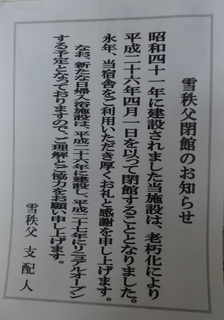 雪秩父閉館のお知らせ
昭和四十一年に建設されました当施設は、老朽化により
平成二十六年四月一日を以って閉館することとなりました。
永年、当宿舎をご利用いただき厚くお礼と感謝を申し上げます。
なお、新たな日帰入浴施設は、平成二十六年に建設し、平成二十七年にリニアルオープン
する予定となっておりますので、ご理解とご協力をお願い申し上げます。
雪秩父 支配人